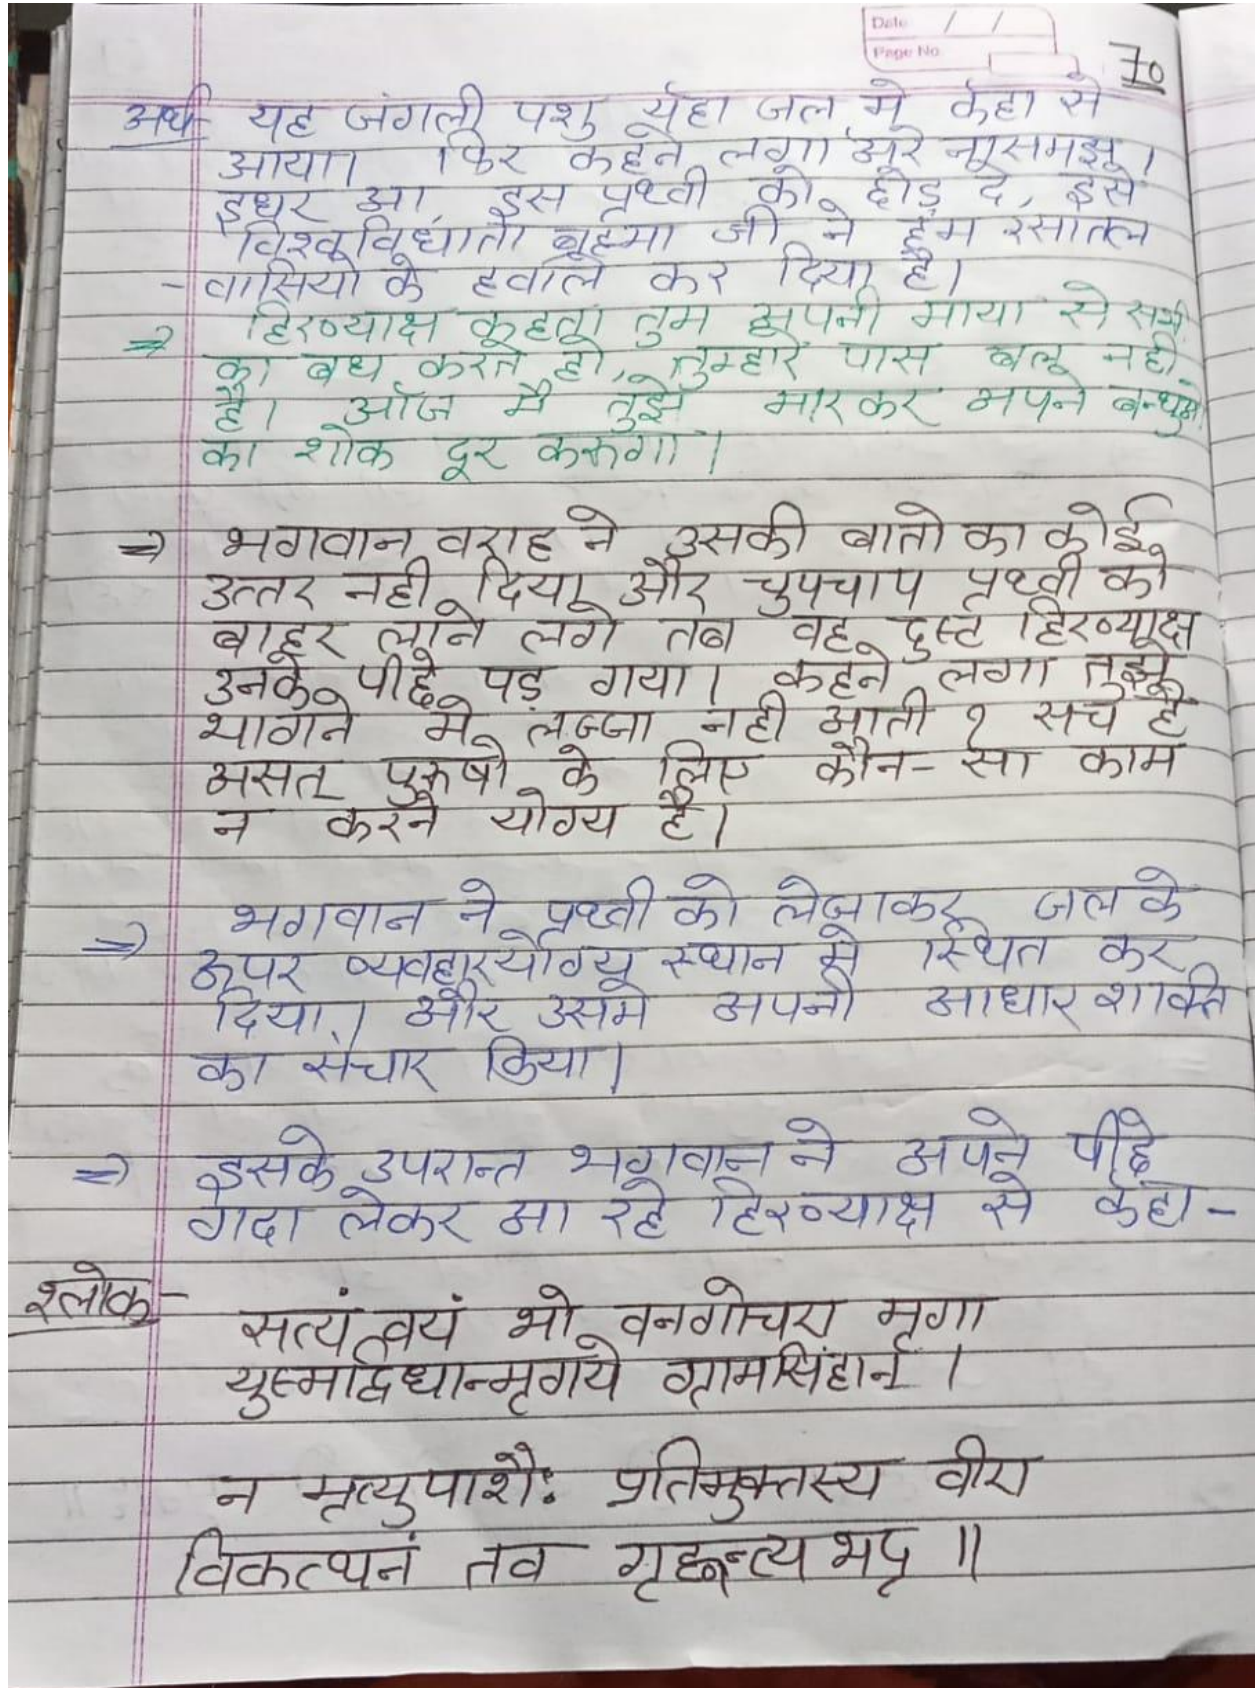 Date / /
Page No
70
अर्थ- यह जंगली पशु यँहा जल मे कँहा से
आया। फिर कहने लगा अरे नासमझ।
इधर आ, इस पृथ्वी को छोड़ दे, इसे
विश्वविधाता ब्रहमा जी ने हम रसातल
- वासियो के हवाले कर दिया है।
⇒ हिरण्याक्ष कहता तुम अपनी माया से सभी
का बध करते हो, तुम्हारे पास बल नही
है। आज मै तुझे मारकर अपने बन्धुओ
का शोक दूर करूगा।
⇒ भगवान वराह ने उसकी बातो का कोई
उत्तर नही दिया और चुपचाप पृथ्वी को
बाहर लाने लगे तब वह दुस्ट हिरण्याक्ष
उनके पीछे पड़ गया। कहने लगा तुझे
भागने मे लज्जा नही आती ? सच है
असत् पुरुषो के लिए कौन-सा काम
न करने योग्य है।
⇒ भगवान ने पृथ्वी को लेजाकर जल के
ऊपर व्यवहारयोग्य स्थान मे स्थित कर
दिया। और उसमे अपनी आधार शक्ति
का संचार किया।
⇒ इसके उपरान्त भगवान ने अपने पीछे
गदा लेकर आ रहे हिरण्याक्ष से कहा -
श्लोक- सत्यं वयं भो वनगोचरा मृगा
युस्मद्विधान्मृगये ग्रामसिंहान् ।
न मृत्युपाशैः प्रतिमुक्तस्य वीरा
विकत्थनं तव गृह्णन्त्यभद्र ॥